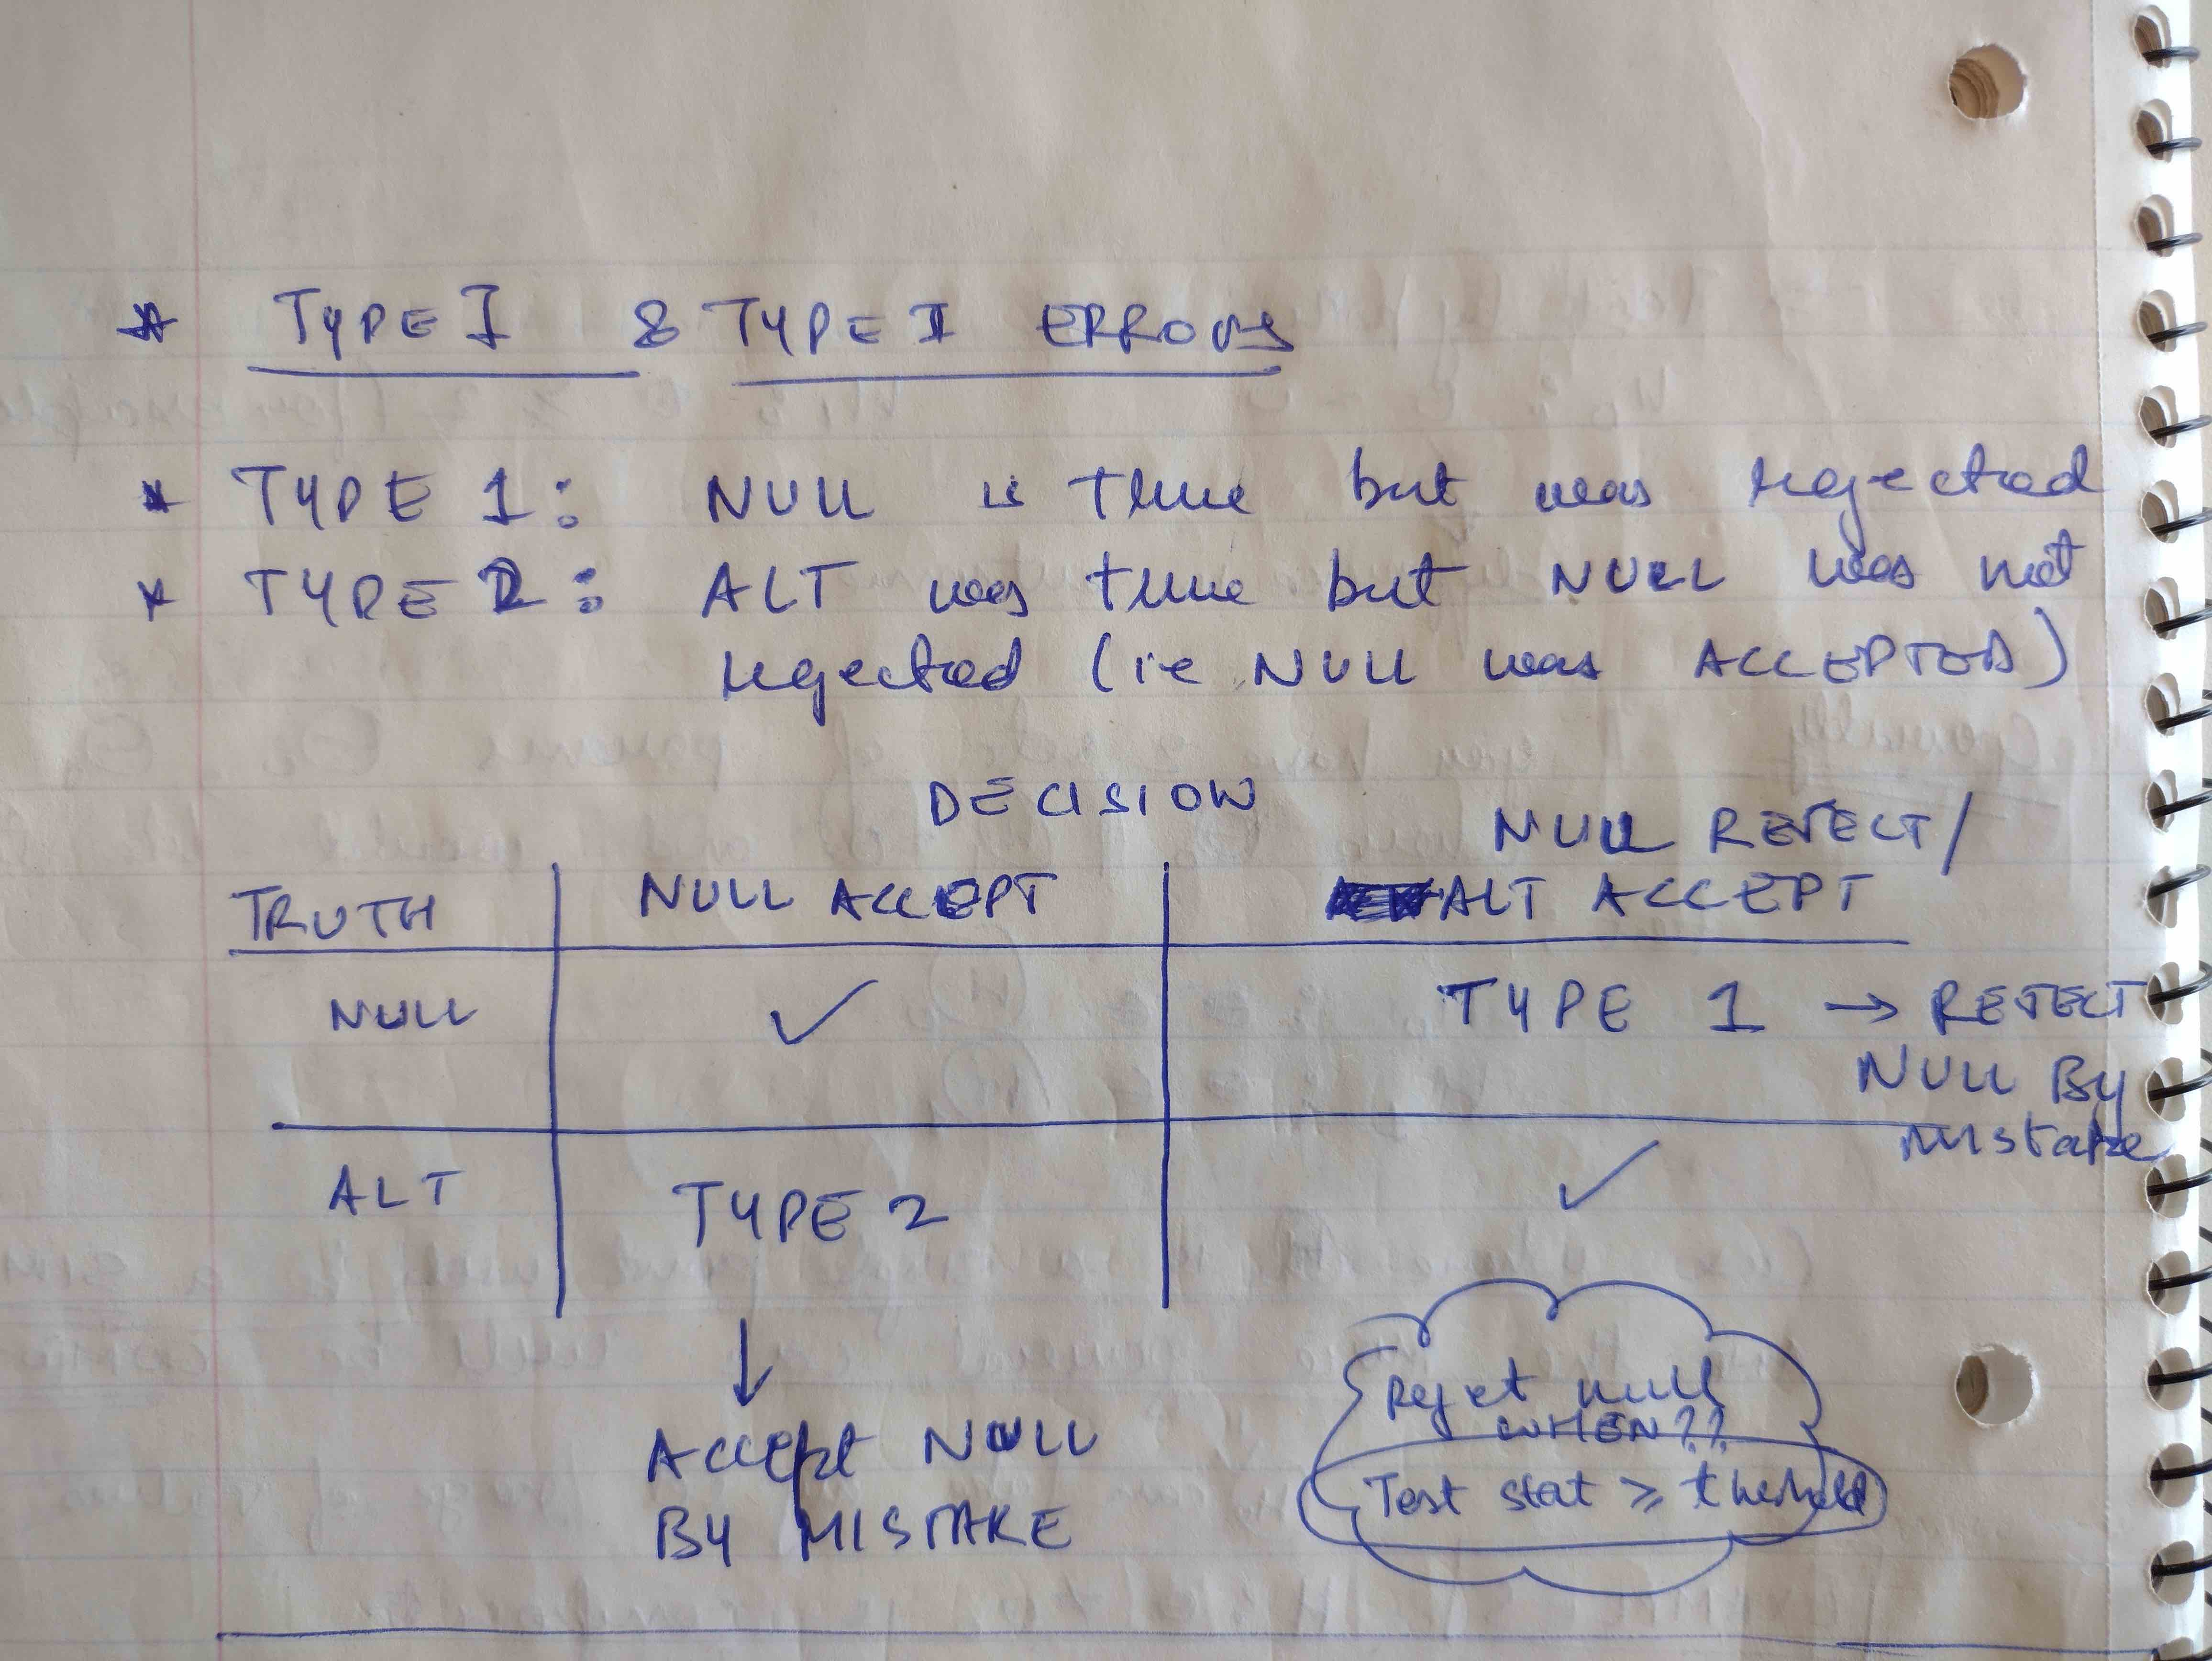 * TYPE I & TYPE II ERRORS
* TYPE 1: NULL is true but was rejected
* TYPE 2: ALT was true but NULL was not
rejected (ie NULL was ACCEPTED)
DECISION
NULL REJECT/
TRUTH NULL ACCEPT ALT ACCEPT
NULL ✓ TYPE 1 → REJECT
NULL By
mistake
ALT TYPE 2 ✓
↓
Accept NULL
BY MISTAKE
Reject null
WHEN??
Test stat ≥ threshold